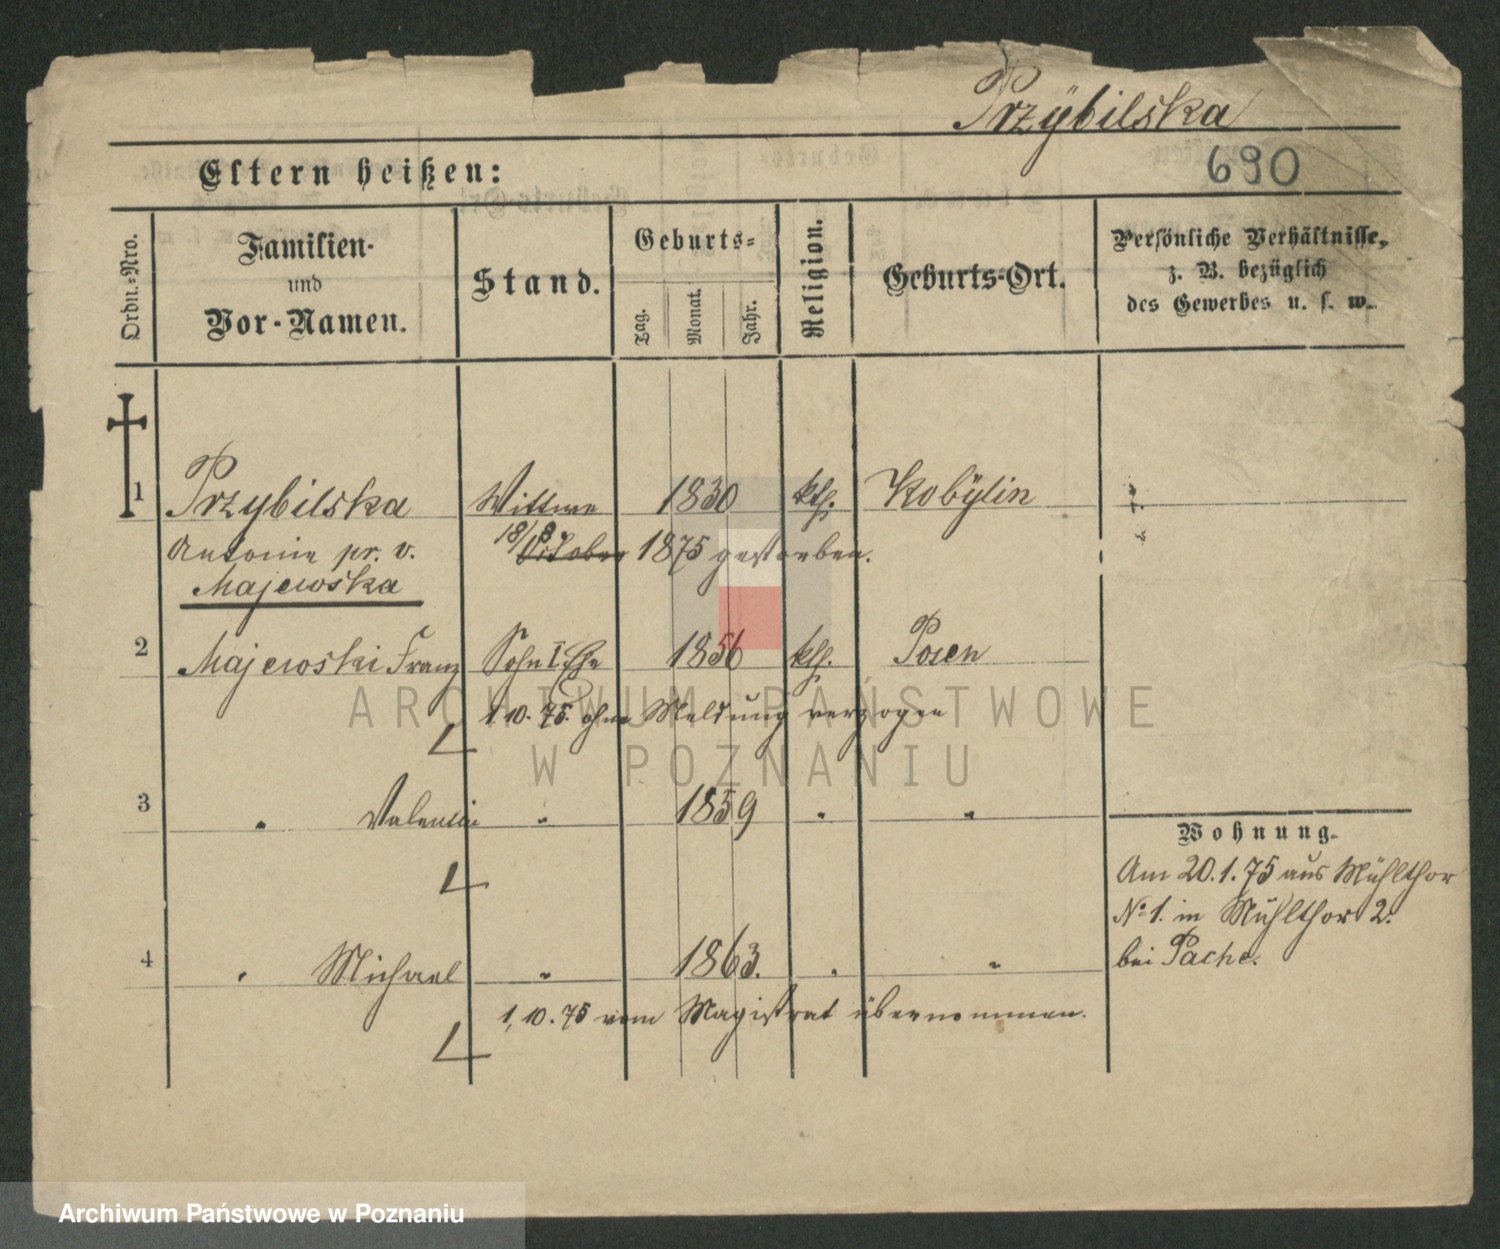 Przÿbilska
690
Eltern heißen:
Ordn.-Nro.
Familien-
und
Vor-Namen.
Stand.
Geburts-
Tag.
Monat.
Jahr.
Religion.
Geburts-Ort.
Persönliche Verhältnisse,
z. B. bezüglich
des Gewerbes u. s. w.
1 Przybilska Wittwe 1830 kth. Kobÿlin
Antonie pr. v. 18/8. October 1875 gestorben.
Majewska
2 Majewski Franz Sohn I Ehe 1856 kth. Posen
1.10.75. ohne Meldung verzogen
3 " Valentin " 1859 " "
Wohnung.
Am 20.1.75 aus Mühlthor
No 1. in Mühlthor 2.
bei Pache.
4 " Michael " 1863. " "
1.10.75 vom Magistrat übernommen.
ARCHIWUM PAŃSTWOWE
W POZNANIU
Archiwum Państwowe w Poznaniu